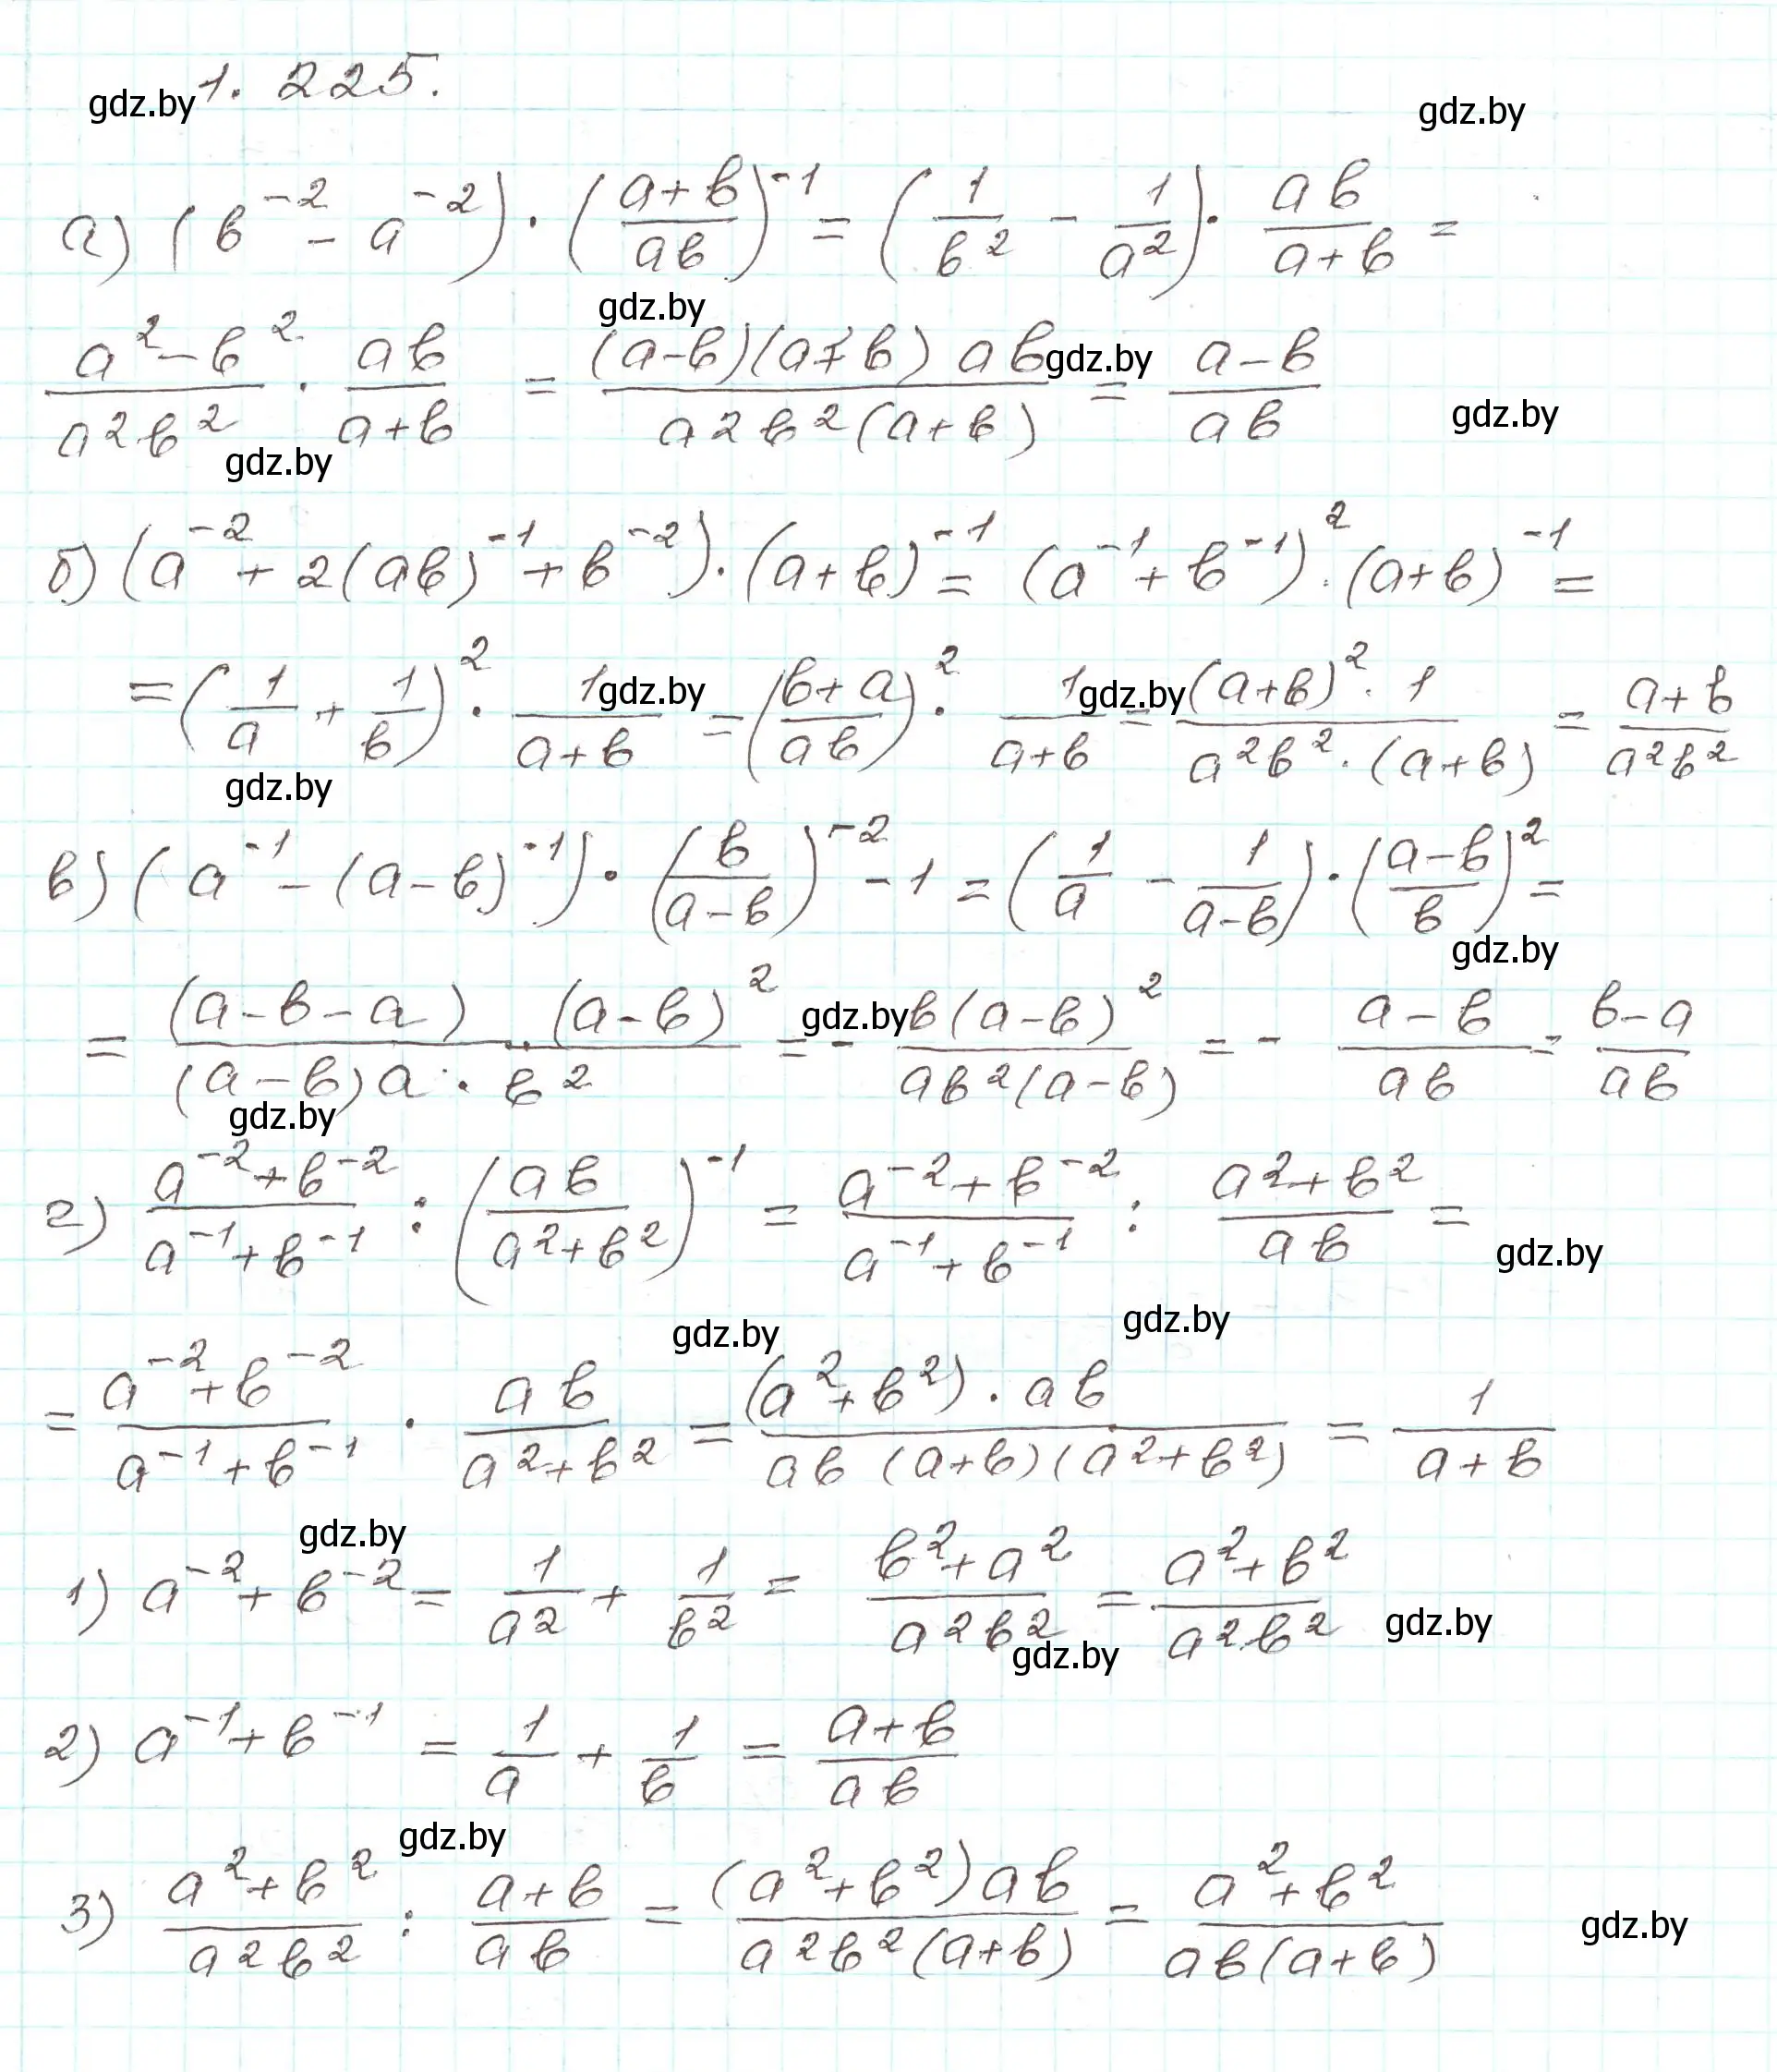 gdz.by 1. 225. gdz.by
а) (b^{-2} - a^{-2}) · ((a+b)/(ab))^{-1} = (1/b^2 - 1/a^2) · (ab)/(a+b) =
gdz.by
(a^2-b^2)/(a^2b^2) · (ab)/(a+b) = ((a-b)(a+b) ab)/(a^2b^2(a+b)) = (a-b)/(ab)
gdz.by
gdz.by
gdz.by
б) (a^{-2} + 2(ab)^{-1} + b^{-2}) · (a+b)^{-1} = (a^{-1} + b^{-1})^2 · (a+b)^{-1} =
= (1/a + 1/b)^2 · 1/(a+b) = ((b+a)/(ab))^2 · 1/(a+b) = ((a+b)^2 · 1)/(a^2b^2 · (a+b)) = (a+b)/(a^2b^2)
gdz.by
gdz.by
gdz.by
в) (a^{-1} - (a-b)^{-1}) · (b/(a-b))^{-2} - 1 = (1/a - 1/(a-b)) · ((a-b)/b)^2 =
gdz.by
= ((a-b-a) · (a-b)^2)/((a-b)a · b^2) = - (b(a-b)^2)/(ab^2(a-b)) = - (a-b)/(ab) = (b-a)/(ab)
gdz.by
gdz.by
г) (a^{-2}+b^{-2})/(a^{-1}+b^{-1}) : ((ab)/(a^2+b^2))^{-1} = (a^{-2}+b^{-2})/(a^{-1}+b^{-1}) : (a^2+b^2)/(ab) =
gdz.by
gdz.by
gdz.by
= (a^{-2}+b^{-2})/(a^{-1}+b^{-1}) · (ab)/(a^2+b^2) = ((a^2+b^2) · ab)/(ab (a+b)(a^2+b^2)) = 1/(a+b)
gdz.by
1) a^{-2} + b^{-2} = 1/a^2 + 1/b^2 = (b^2+a^2)/(a^2b^2) = (a^2+b^2)/(a^2b^2)
gdz.by
gdz.by
2) a^{-1} + b^{-1} = 1/a + 1/b = (a+b)/(ab)
gdz.by
3) (a^2+b^2)/(a^2b^2) : (a+b)/(ab) = ((a^2+b^2)ab)/(a^2b^2(a+b)) = (a^2+b^2)/(ab(a+b))
gdz.by